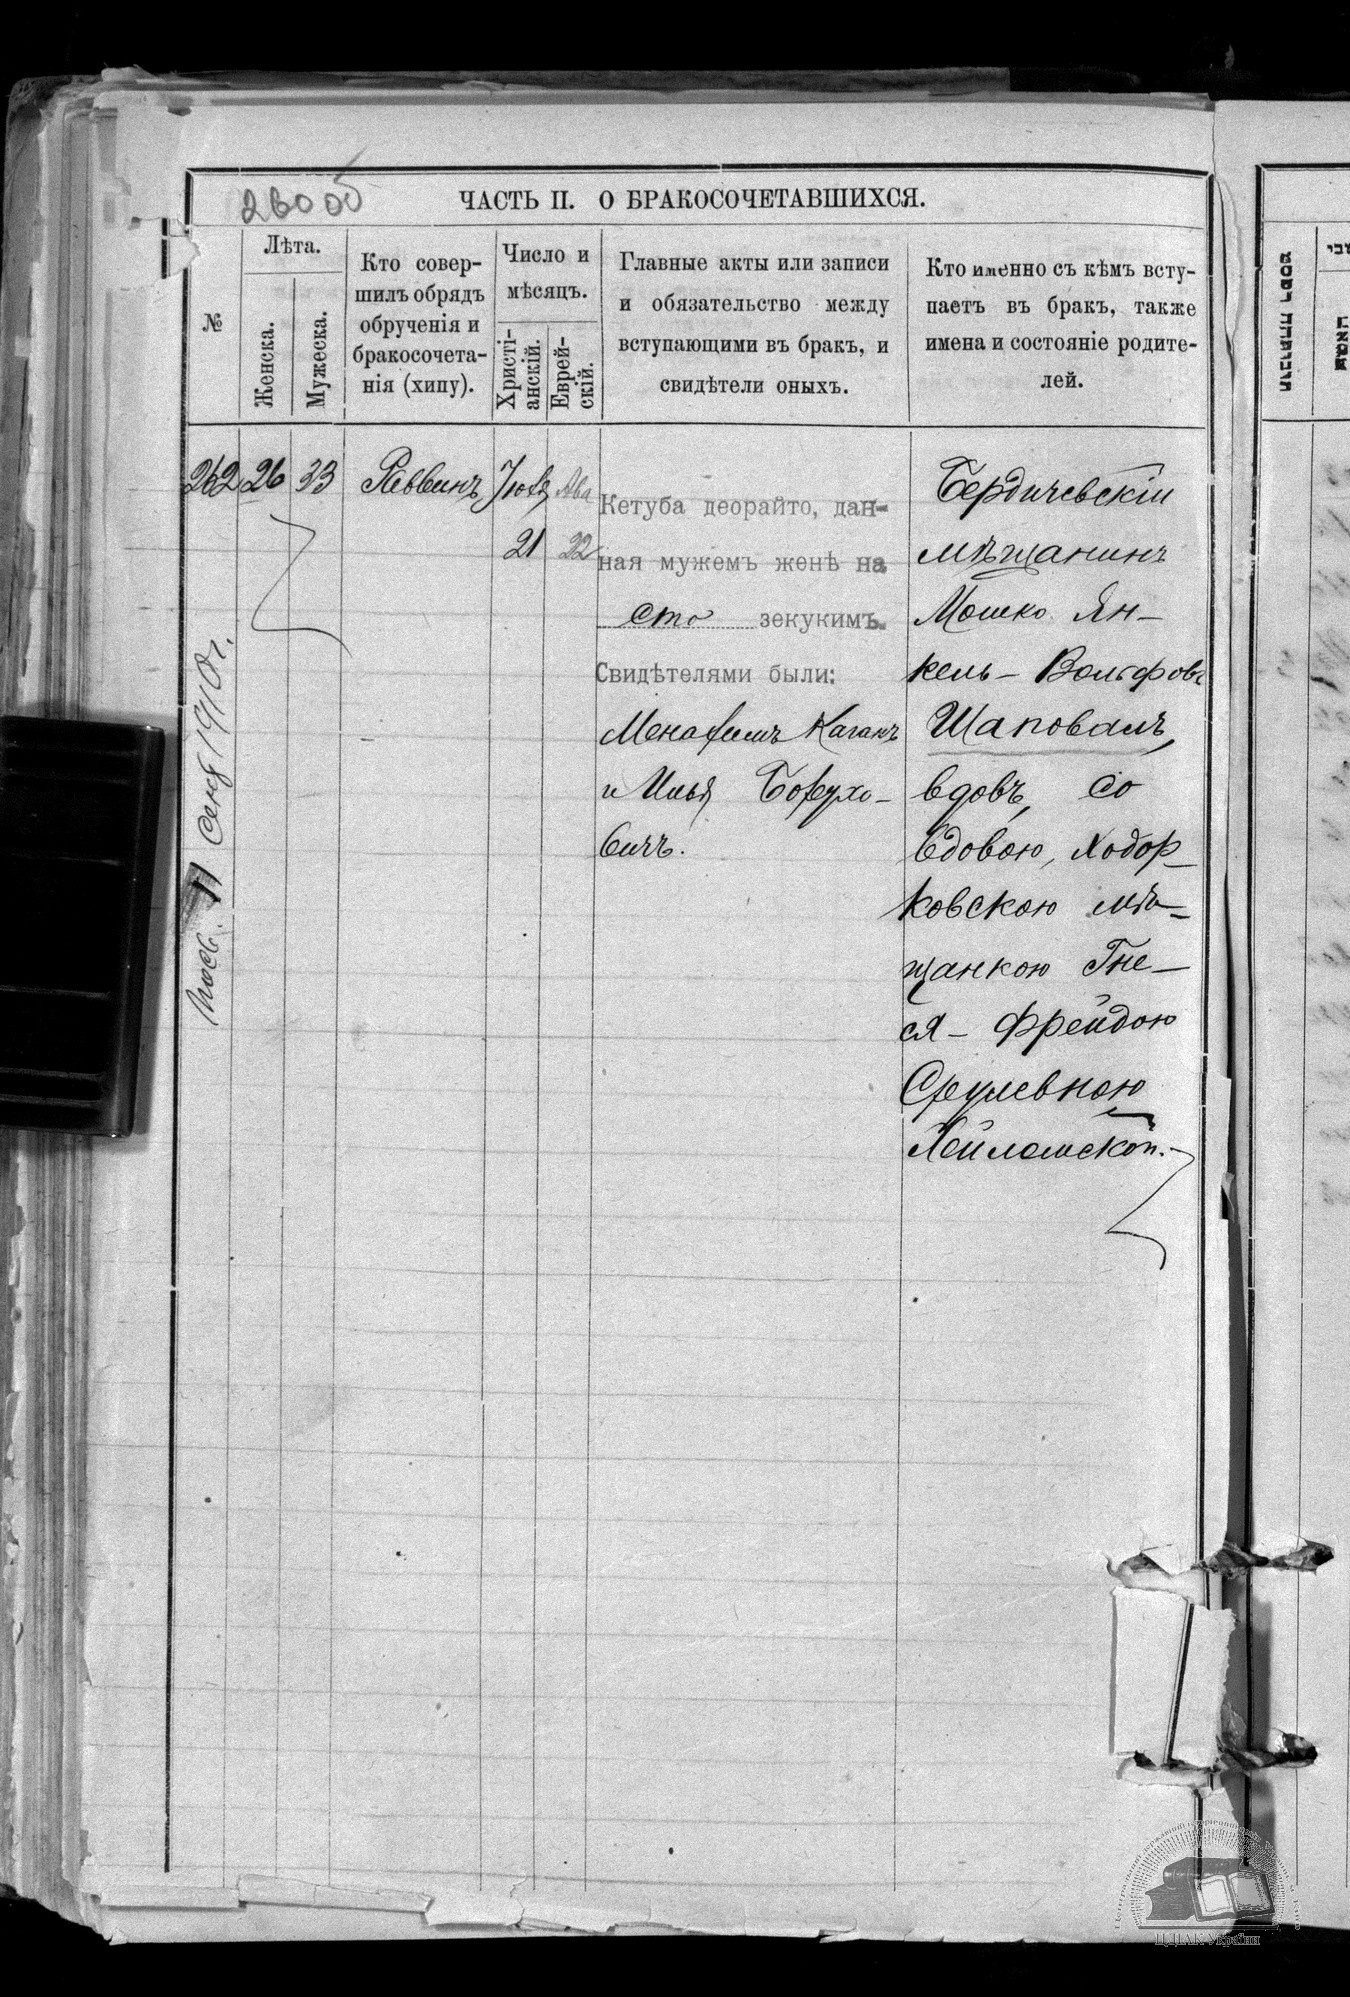 260об
ЧАСТЬ II. О БРАКОСОЧЕТАВШИХСЯ.
№
Лѣта.
Женска.
Мужеска.
Кто совер-
шилъ обрядъ
обрученія и
бракосочета-
нія (хипу).
Число и
мѣсяцъ.
Христі-
анскій.
Еврей-
скій.
Главные акты или записи
и обязательство между
вступающими въ бракъ, и
свидѣтели оныхъ.
Кто именно съ кѣмъ всту-
паетъ въ бракъ, также
имена и состояніе родите-
лей.
262
26
33
Раввинъ
Іюля
21
Ава
22
Кетуба деорайто, дан-
ная мужемъ женѣ на
сто зекукимъ.
Свидѣтелями были:
Менахемъ Каганъ
и Илья Борухо-
вичъ.
Бердичевскій
мѣщанинъ
Мошко Ян-
кель-Вольфовъ
Шаповалъ,
вдовъ, со
вдовою, Ходор-
ковскою мѣ-
щанкою Гне-
ся-Фрейдою
Срулевною
11 Сент 1910 г.
ЦДІАК України